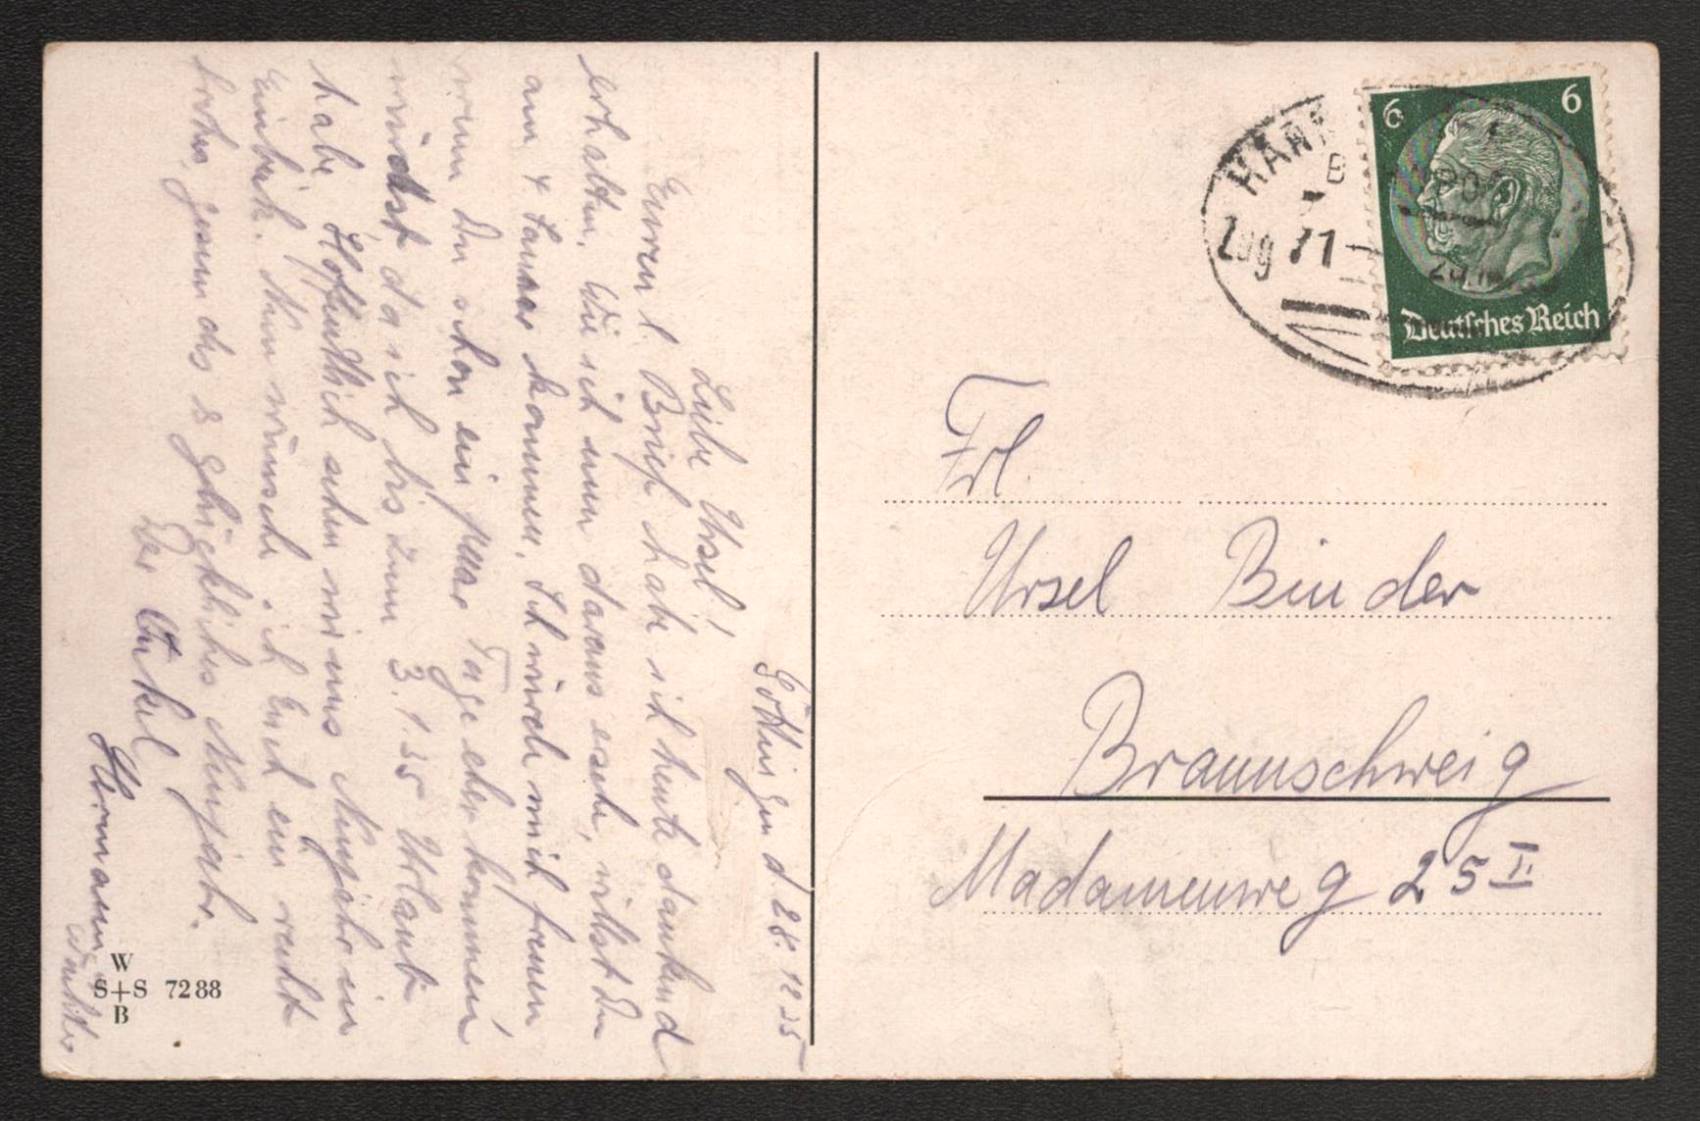 Göttingen d. 28. 12 35
Liebe Ursel!
Euren l. Brief habe ich heute dankend
erhalten. Wie ich nun daraus ersehe, willst Du
am 4 Januar kommen. Ich würde mich freuen
wenn Du schon ein paar Tage eher kommen
würdest da ich bis zum 3.1.35 Urlaub
habe. Hoffentlich sehen wir uns Neujahr in
Einbeck. Nun wünsche ich Euch ein recht
frohes, gesundes & glückliches Neujahr.
Onkel
Hermann
6 6
Deutsches Reich
HANN
B
Zug 71
Frl.
Ursel Binder
Braunschweig
Madamenweg 25 II
W
S+S 7288
B